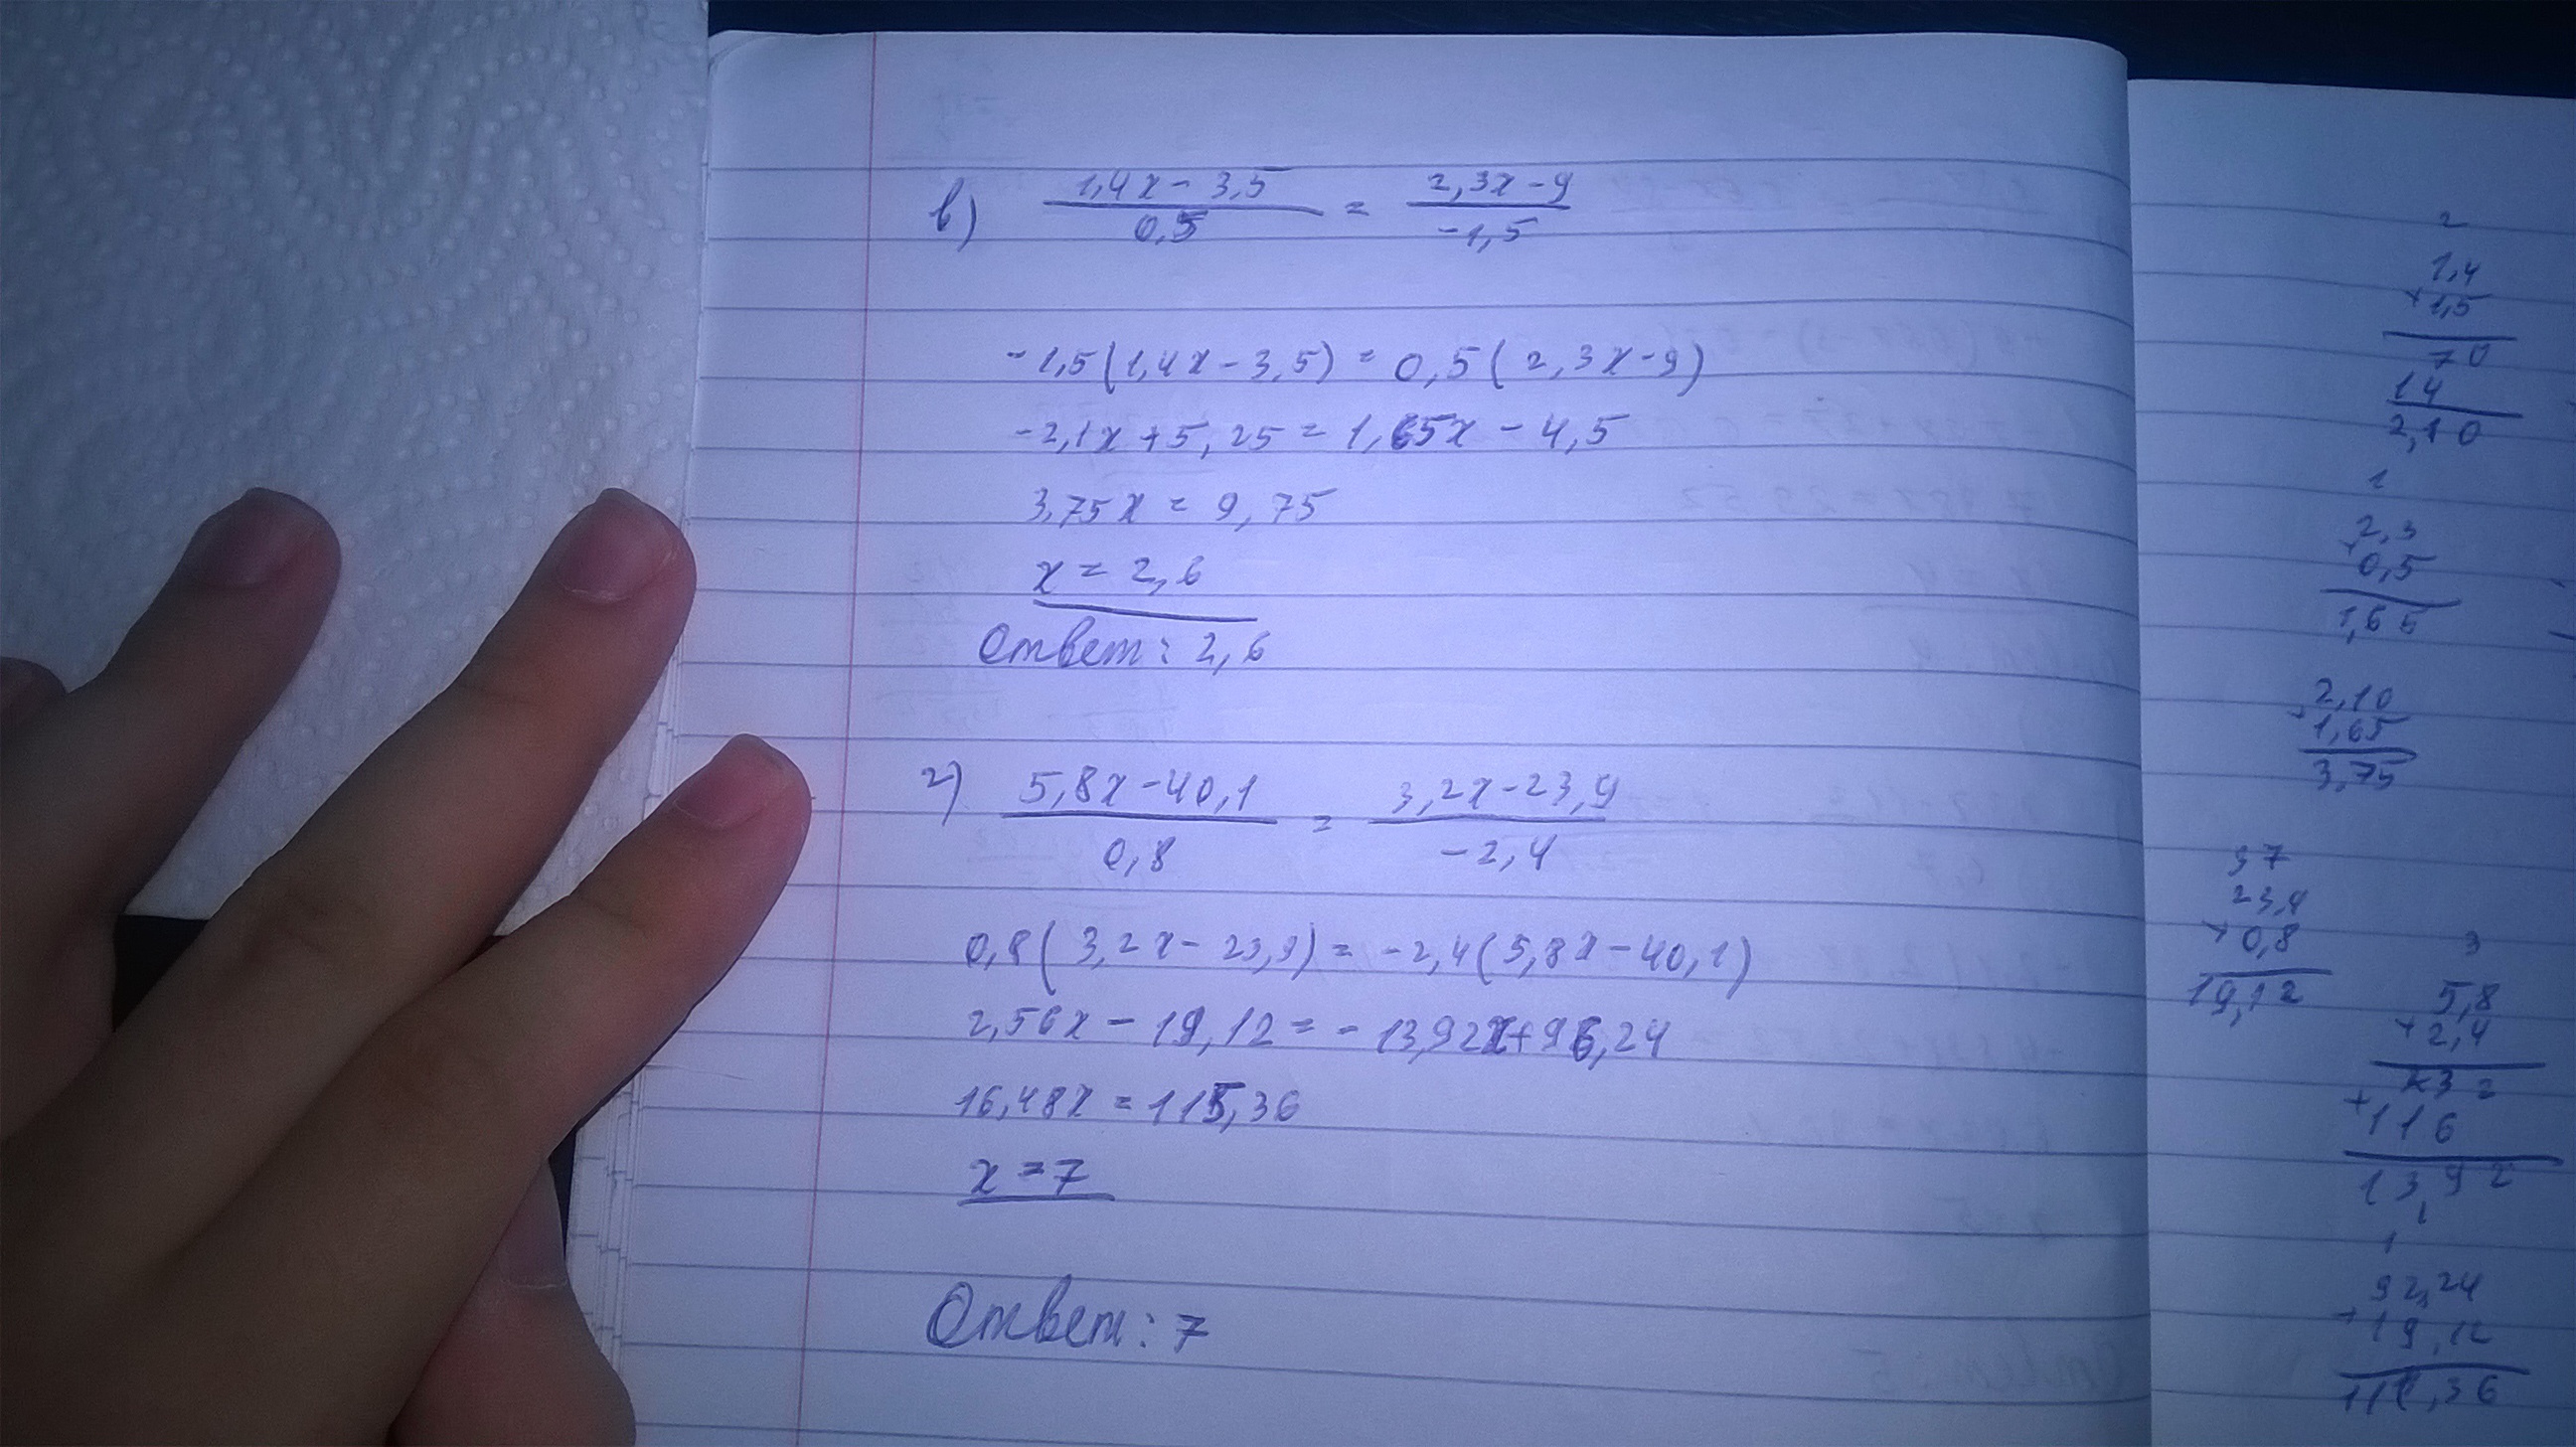 в) 1,4x - 3,5 / 0,5 = 2,3x - 9 / -1,5
-1,5(1,4x - 3,5) = 0,5(2,3x - 9)
-2,1x + 5,25 = 1,65x - 4,5
3,75x = 9,75
x = 2,6
Ответ: 2,6
г) 5,8x - 40,1 / 0,8 = 3,2x - 23,9 / -2,4
0,8(3,2x - 23,9) = -2,4(5,8x - 40,1)
2,56x - 19,12 = -13,92x + 96,24
16,48x = 115,36
x = 7
Ответ: 7
2
1,4
× 1,5
70
14
2,10
1
2,3
× 0,5
1,65
2,10
+ 1,65
3,75
3 7
23,9
× 0,8
19,12
3
5,8
× 2,4
232
+ 116
13,92
1
92,24
+ 19,12